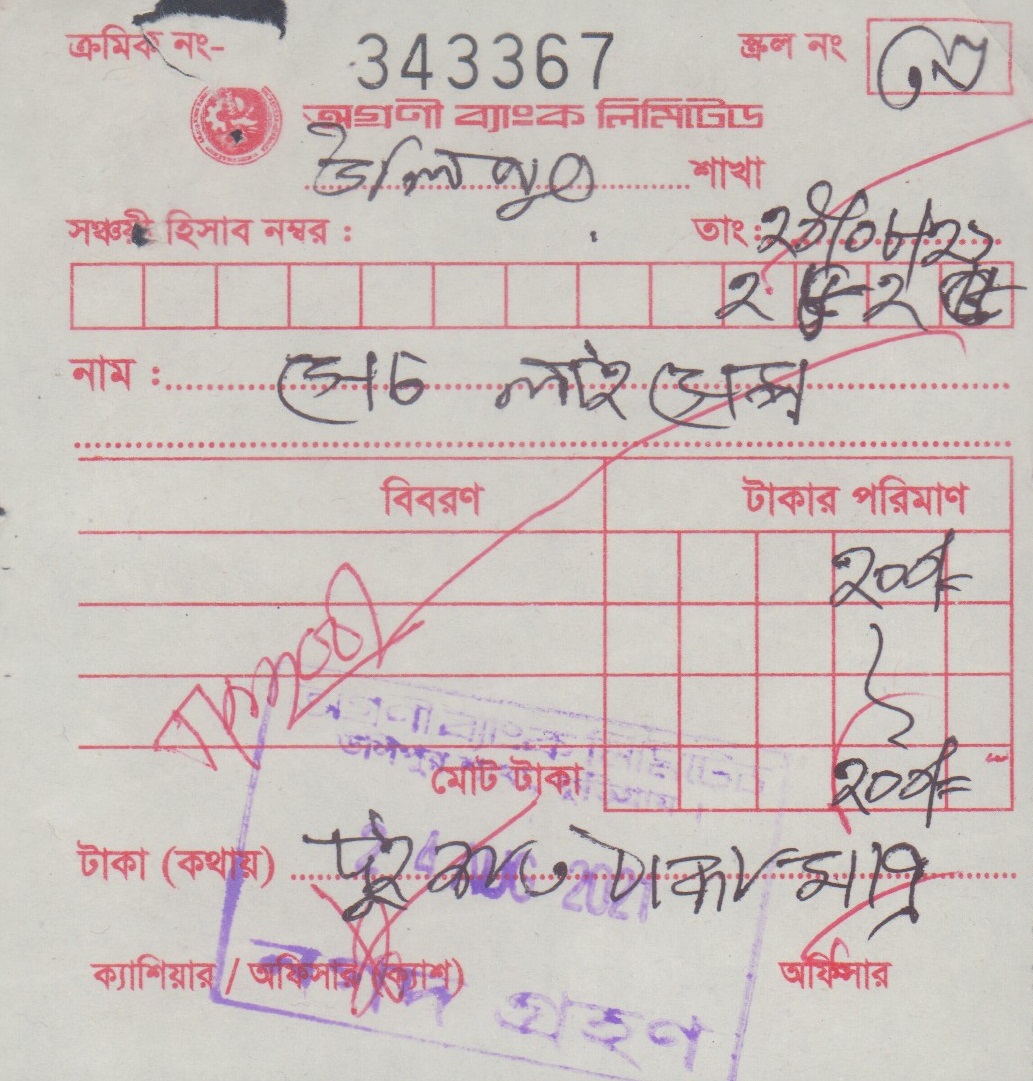 ক্রমিক নং-
343367
স্ক্রল নং
অগ্রণী ব্যাংক লিমিটেড
উলিপুর শাখা
সঞ্চয়ী হিসাব নম্বর :
তাং : ২৪/০৮/২১
নাম : সেচ লাইসেন্স
বিবরণ টাকার পরিমাণ
২০০/=
মোট টাকা ২০০/=
টাকা (কথায়) দুই শত টাকা মাত্র
ক্যাশিয়ার / অফিসার (ক্যাশ) অফিসার
অগ্রণী ব্যাংক লিমিটেড
24 AUG 2021
নগদ গ্রহণ